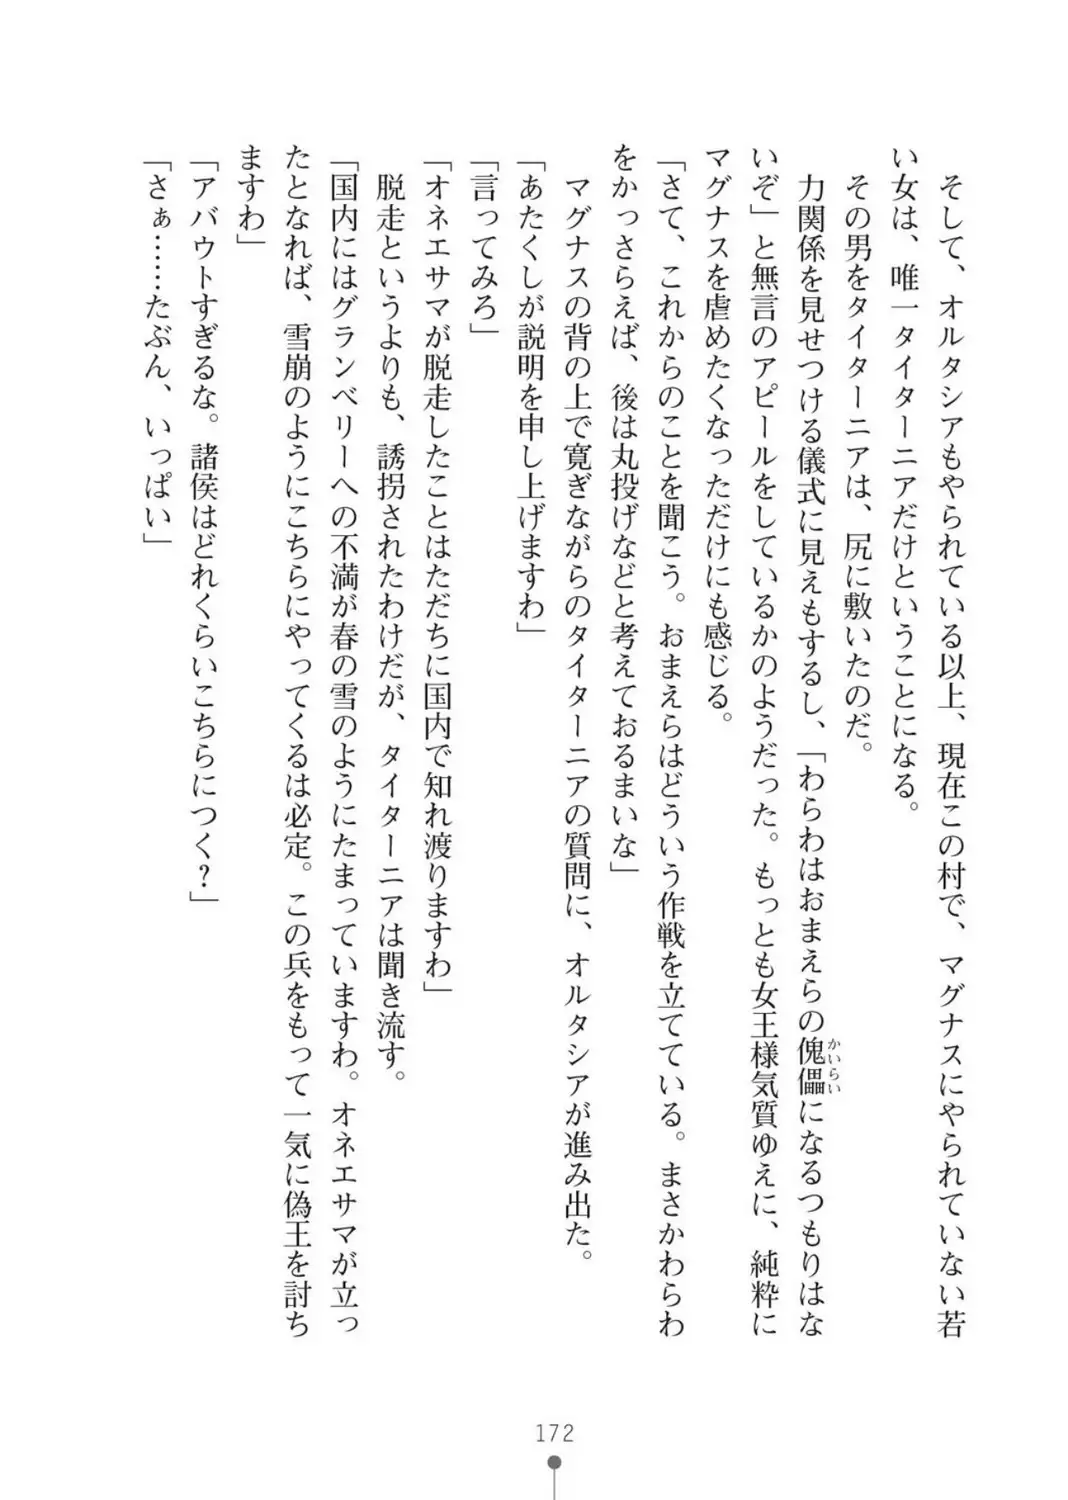 そして、オルタシアもやられている以上、現在この村で、マグナスにやられていない若
い女は、唯一タイターニアだけということになる。
その男をタイターニアは、尻に敷いたのだ。
力関係を見せつける儀式に見えもするし、「わらわはおまえらの傀儡になるつもりはな
かいらい
いぞ」と無言のアピールをしているかのようだった。もっとも女王様気質ゆえに、純粋に
マグナスを虐めたくなっただけにも感じる。
「さて、これからのことを聞こう。おまえらはどういう作戦を立てている。まさかわらわ
をかっさらえば、後は丸投げなどと考えておるまいな」
マグナスの背の上で寛ぎながらのタイターニアの質問に、オルタシアが進み出た。
「あたくしが説明を申し上げますわ」
「言ってみろ」
「オネエサマが脱走したことはただちに国内で知れ渡りますわ」
脱走というよりも、誘拐されたわけだが、タイターニアは聞き流す。
「国内にはグランベリーへの不満が春の雪のようにたまっていますわ。オネエサマが立っ
たとなれば、雪崩のようにこちらにやってくるは必定。この兵をもって一気に偽王を討ち
ますわ」
「アバウトすぎるな。諸侯はどれくらいこちらにつく？」
「さぁ……たぶん、いっぱい」
172